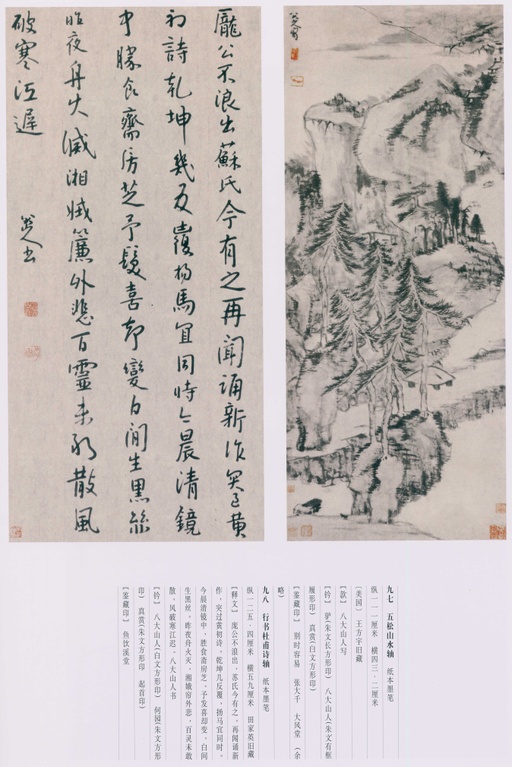 八大山人寫
龐公不浪出蘇氏今有之再聞誦新作突過黄
初詩乾坤幾反覆揚馬宜同時今晨清鏡
中勝食齋房芝予髮喜却變白間生黑絲
昨夜舟火滅湘娥簾外悲百靈未敢散風
破寒江遲 八大山人書
九七 五松山水轴 纸本墨笔
纵一一一厘米 横四三·二厘米
(美国) 王方宇旧藏
[款] 八大山人写
[钤] 驴(朱文长方形印) 八大山人(朱文有框
屐形印) 真赏(白文方形印)
[鉴藏印] 别时容易 张大千 大风堂 (余
略)
九八 行书杜甫诗轴 纸本墨笔
纵一二五·四厘米 横五九厘米 田家英旧藏
[释文] 庞公不浪出，苏氏今有之。再闻诵新
作，突过黄初诗。乾坤几反覆，扬马宜同时。
今晨清镜中，胜食斋房芝。予发喜却变，白间
生黑丝。昨夜舟火灭，湘娥帘外悲。百灵未敢
散，风破寒江迟。八大山人书
[钤] 八大山人(白文方形印) 何园(朱文方形
印) 真赏(朱文方形印 起首印)
[鉴藏印] 鱼饮溪堂